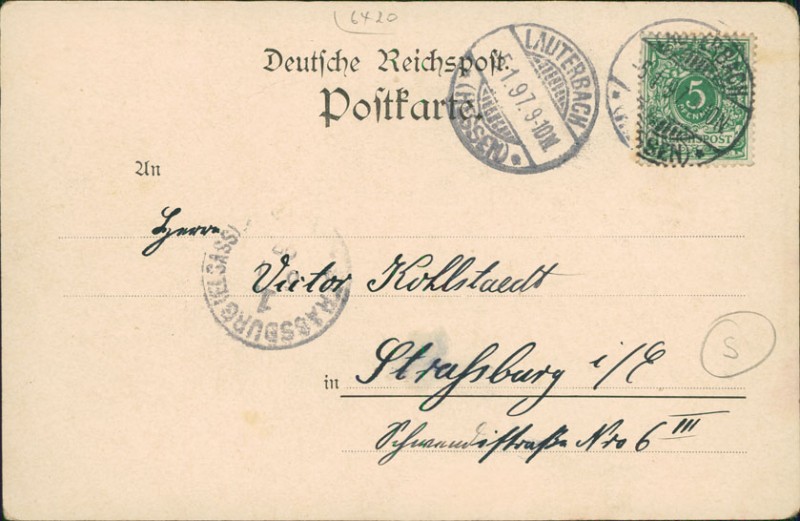 6420
Deutsche Reichspost.
Postkarte.
LAUTERBACH
1.97.9-10N.
*(HESSEN)*
5
PFENNIG
REICHSPOST
An
Herrn
STRASSBURG (ELSASS)
1
Victor Kohlstaedt
S
in Straßburg i/E
Schwendistraße Nro 6 III